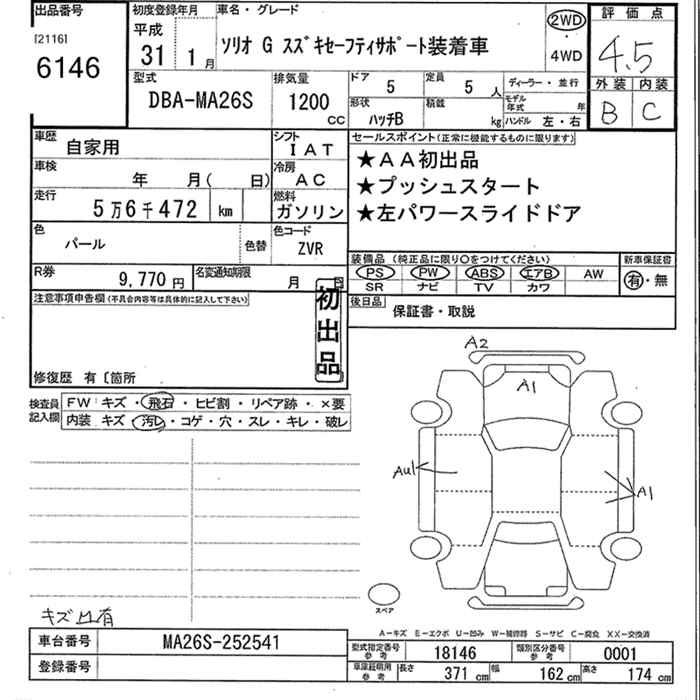 出品番号
[2116]
6146
初度登録年月
平成
31 1月
車名・グレード
ソリオ G スズキセーフティサポート装着車
2WD
・
4WD
評価点
4.5
外装 内装
B C
型式
DBA-MA26S
排気量
1200
CC
ドア
5
定員
5 人
ディーラー・並行
形状
ハッチB
積載
kg
モデル年式 年
ハンドル 左・右
車歴
自家用
シフト
IAT
セールスポイント(正常に機能するものに限ります)
★AA初出品
★プッシュスタート
★左パワースライドドア
車検
年 月( 日)
冷房
AC
走行
5万6千472 km
燃料
ガソリン
色
パール
色替
色コード
ZVR
装備品(純正品に限り○をつけてください)
PS PW ABS エアB AW
SR ナビ TV カワ
新車保証書
有・無
R券
9,770 円
名変通知期限
月 日
注意事項申告欄(不具合内容等は具体的に記入して下さい)
初出品
後日品
保証書・取説
修復歴 有〔箇所
検査員記入欄
FW キズ・飛石・ヒビ割・リペア跡・×要
内装 キズ・汚レ・コゲ・穴・スレ・キレ・破レ
A2
A1
Au1
A1
スペア
A－キズ E－エクボ U－凹み W－補修跡 S－サビ C－腐食 XX－交換済
車台番号
MA26S-252541
登録番号
型式指定番号
参考
18146
類別区分番号
参考
0001
車庫証明用
参考
長さ 371 cm
幅 162 cm
高さ 174 cm